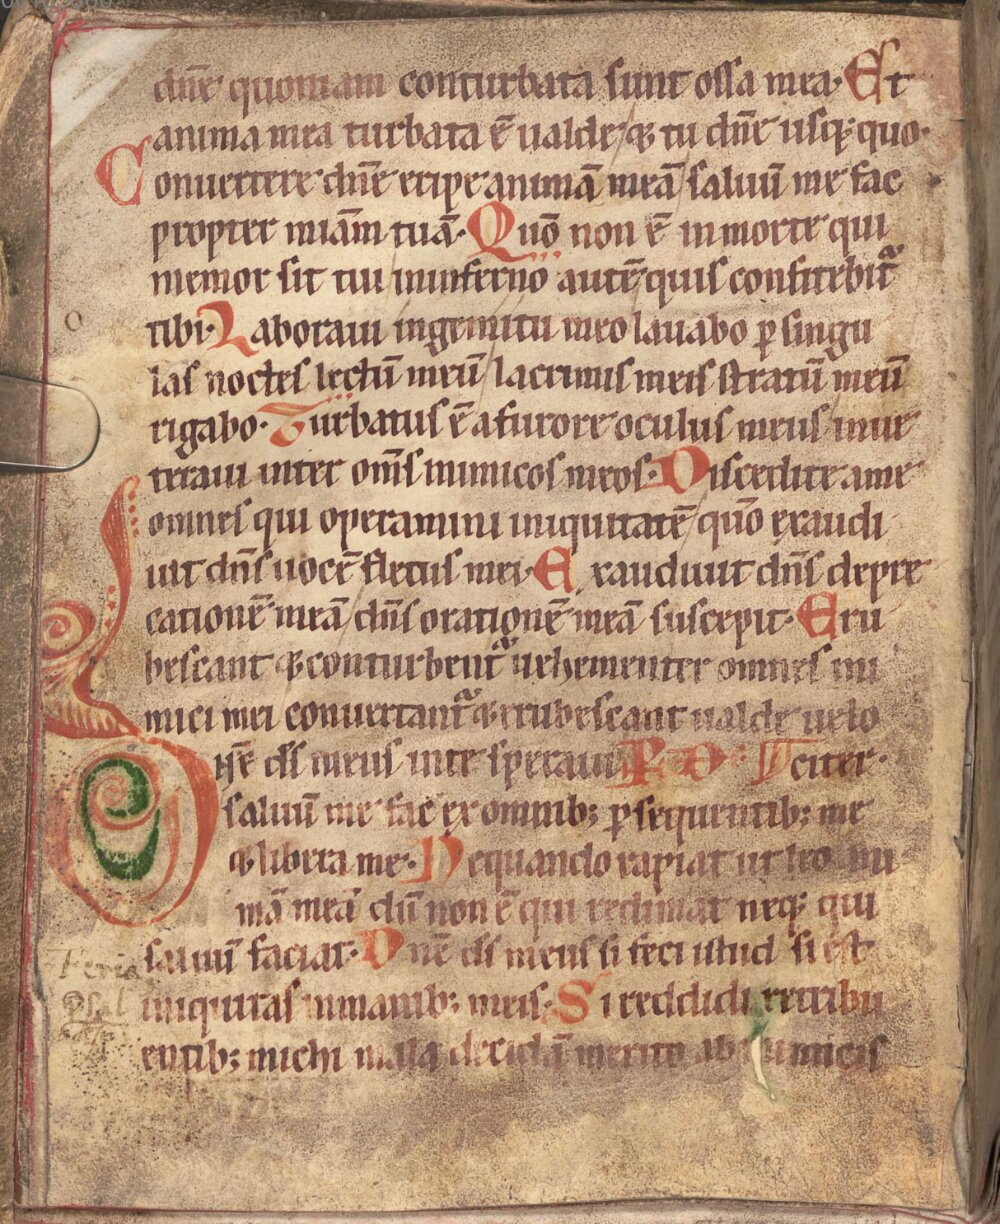 dñe quoniam conturbata sunt ossa mea. Et
anima mea turbata ē ualde & tu dñe usq; quo.
Conuertere dñe eripe animā meā saluū me fac
propter miām tuā. Quō non ē in morte qui
memor sit tui in inferno autē quis confitebit᷑
tibi. Laboraui in gemitu meo lauabo ꝑ singu
las noctes lectū meū lacrimis meis stratū meū
rigabo. Turbatus ē a furore oculus meus inue
teraui inter om̄s inimicos meos. Discedite a me
omnes qui operamini iniquitatē quō exaudi
uit dñs uocē fletus mei. Exaudiuit dñs depre
cationē meā dñs orationē meā suscepit. Eru
bescant & conturbent᷑ uehementer omnes ini
mici mei conuertant᷑ & erubescant ualde uelo
Dñe ds meus in te speraui citer.
saluū me fac ex omnib; ꝑsequentib; me
& libera me. Nequando rapiat ut leo ani
mā meā dū non ē qui redimat neq; qui
saluū faciat. Dñe ds meus si feci istud si est
iniquitas in manib; meis. Si reddidi retribu
entib; michi mala decidā merito ab inimicis
Feria
Psal